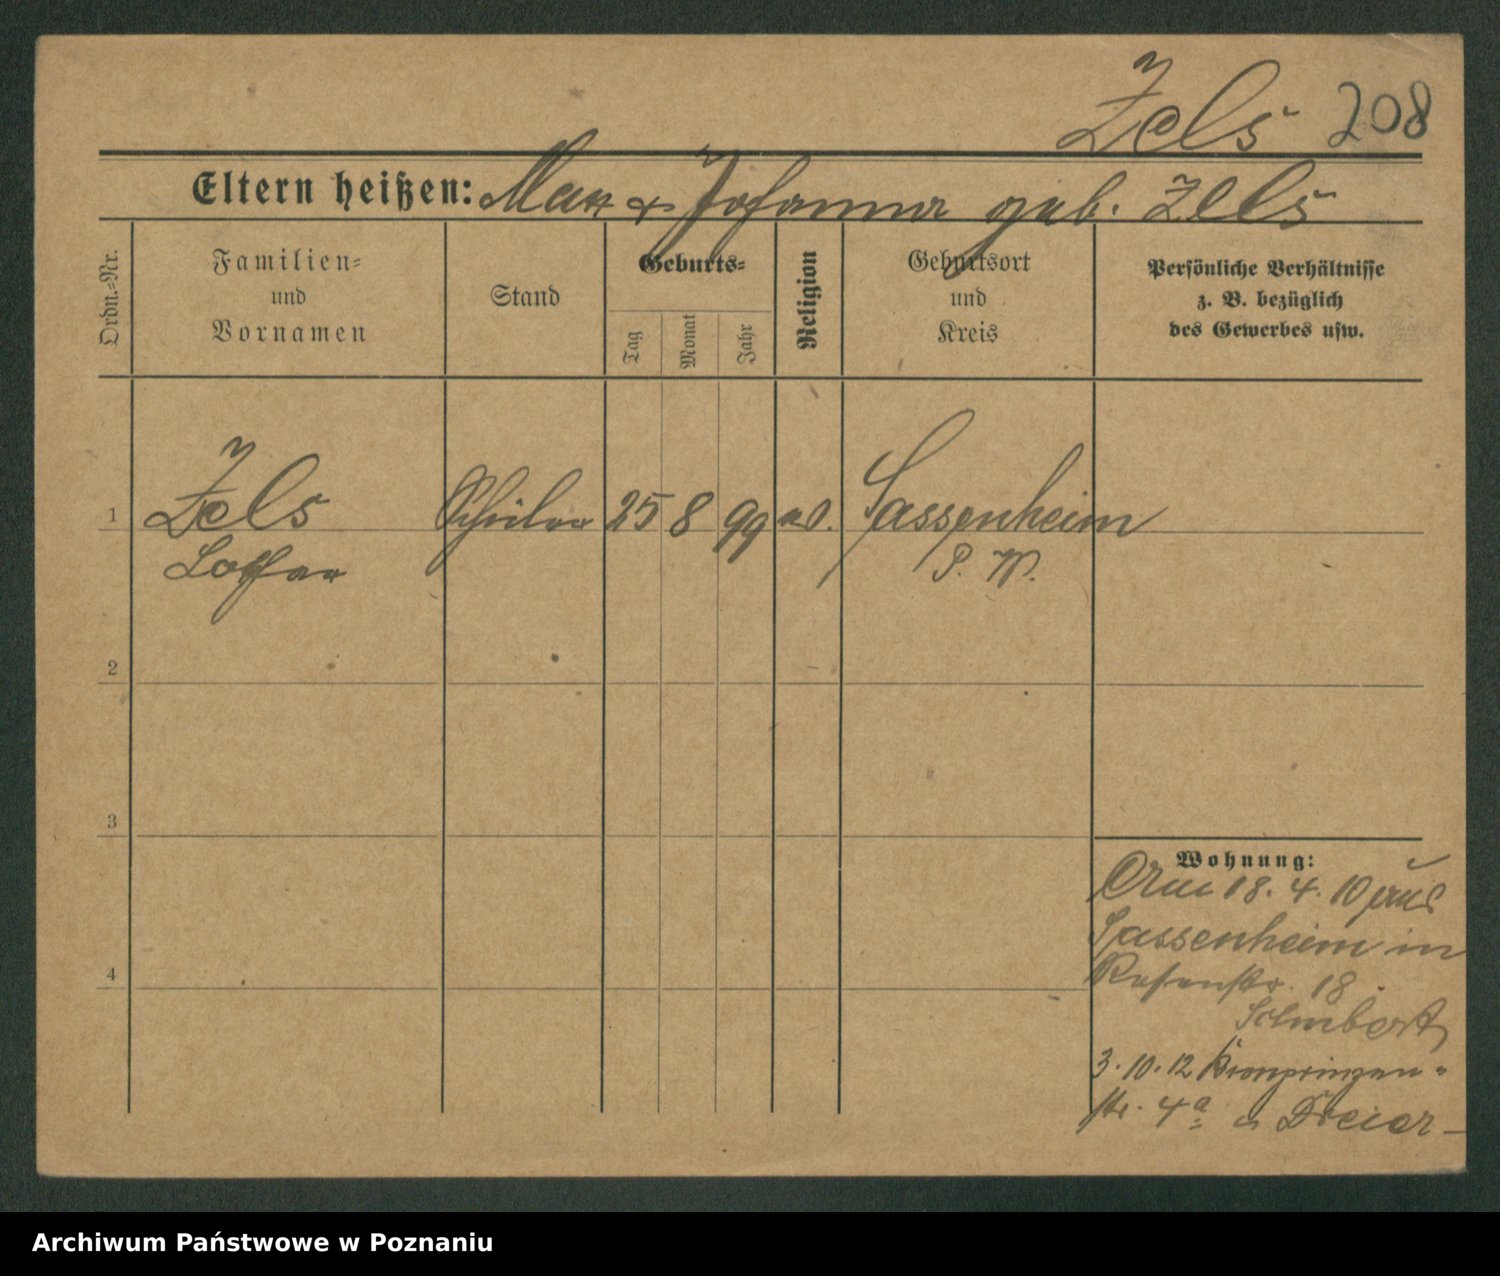 Zels 208
Eltern heißen: Max & Johanna geb. Zels
Ordn.-Nr.
Familien-
und
Vornamen
Stand
Geburts-
Tag
Monat
Jahr
Religion
Geburtsort
und
Kreis
Persönliche Verhältnisse
z. B. bezüglich
des Gewerbes usw.
1 Zels Schüler 25 8 99 ev. Sassenheim
Lothar P. W.
2
3
4
Wohnung:
18. 4. 10 aus
Sassenheim in
Rosenstr. 18
3. 10. 12 Kronprinzen-
str. 4a
Archiwum Państwowe w Poznaniu